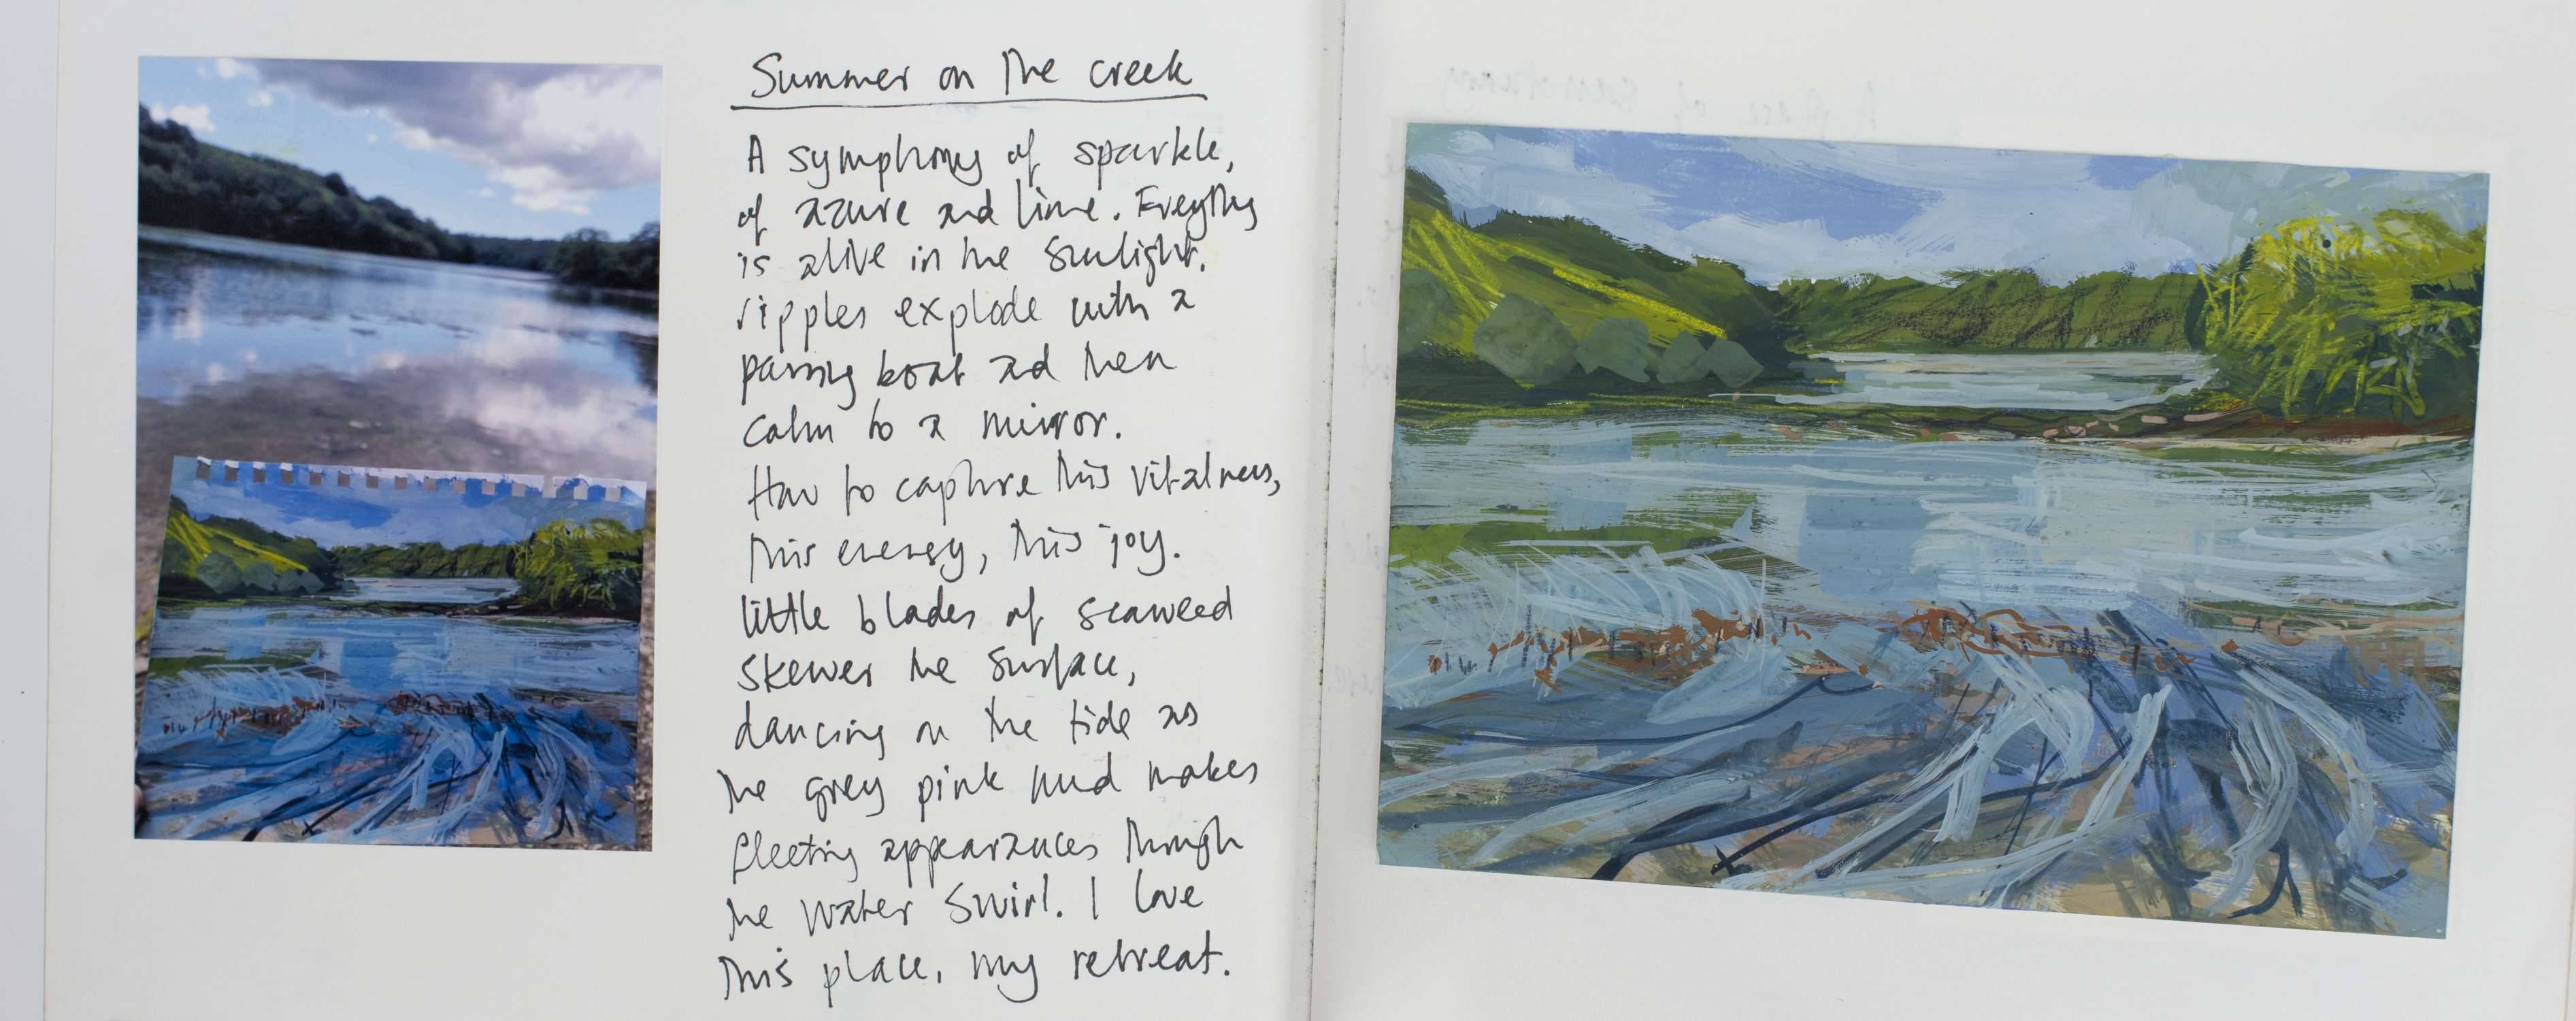 Summer on the creek
A symphony of sparkle,
of azure and lime. Everything
is alive in the sunlight.
ripples explode with a
passing boat and then
calm to a mirror.
How to capture this vitalness,
this energy, this joy.
little blades of seaweed
skewer the surface,
dancing on the tide as
the grey pink mud makes
fleeting appearances through
the water swirl. I love
this place, my retreat.
A place of sanctuary